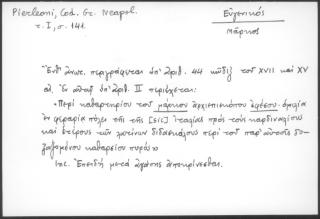 Pierleoni, Cod. Gr. Neapol.
τ. I, σ. 141.
Εὐγενικός
Μᾶρκος
Ἔνθ' ἀνωτ. περιγράφεται ὑπ' ἀριθ. 44 κῶδιξ τοῦ XVII καὶ XV
αἰ. Ἐν αὐτῷ ὑπ' ἀριθ. II περιέχεται:
«Περὶ καθαρτηρίου τοῦ μάρκου ἀρχιεπισκόπου ἐφέσου· ὁμιλία
ἐν φεραρία πόλει τῆς τῆς [sic] ἰταλίας πρὸς τοὺς καρδιναλίους
καὶ ἑτέρους τῶν λατίνων διδασκάλους περὶ τοῦ παρ' αὐτοῖς δο-
ξαζομένου καθαρσίου πυρός»
Inc. Ἐπειδὴ μετὰ ἀγάπης ἀποκρίνεσθαι.